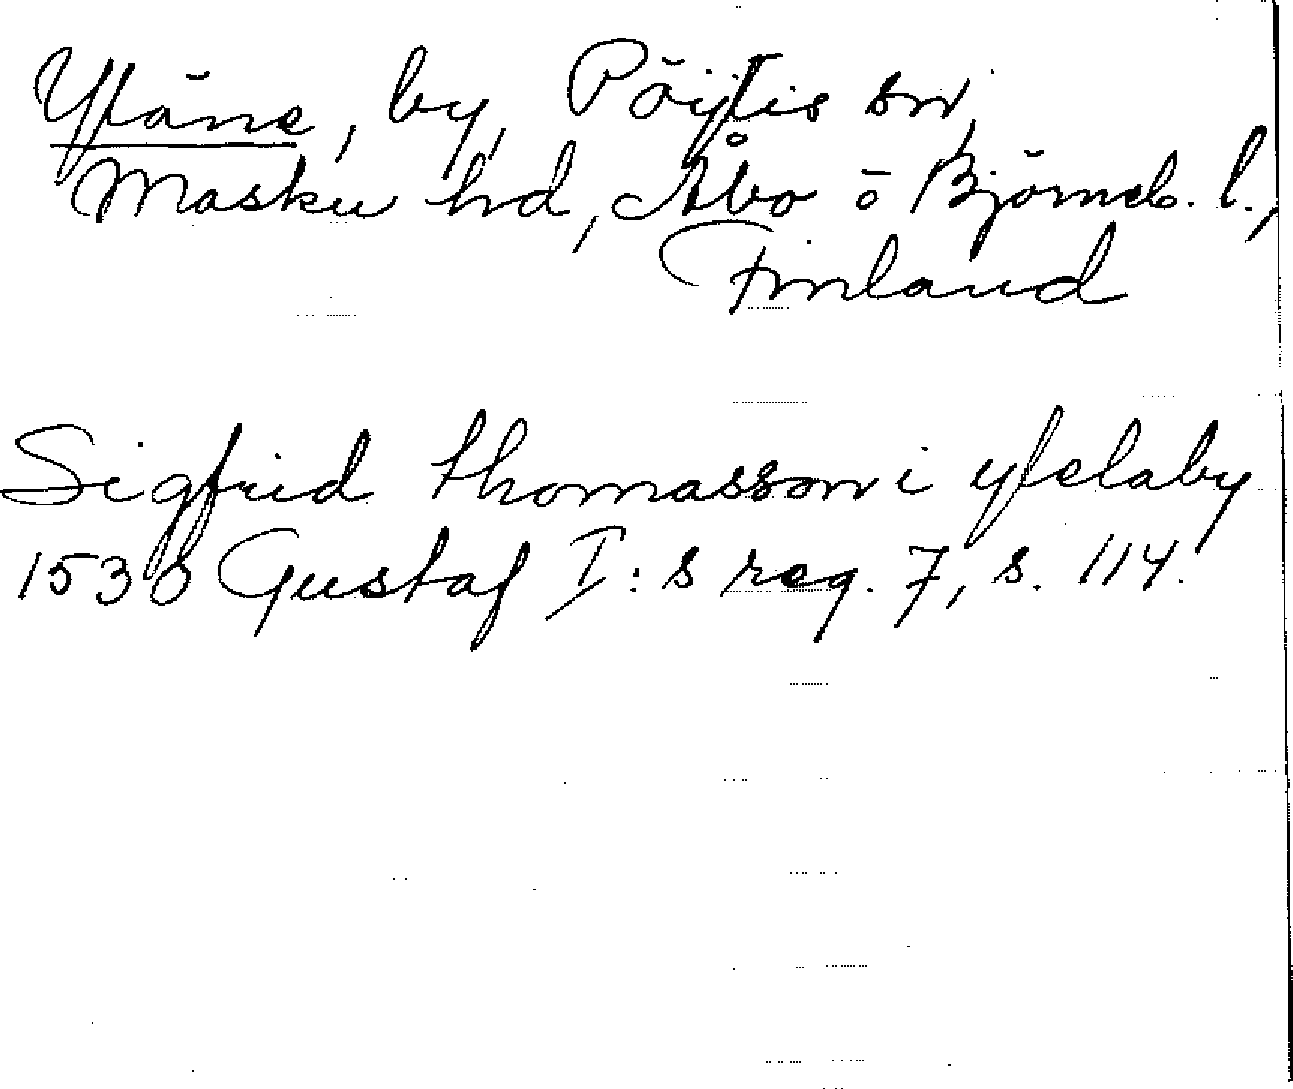 Yläne, by, Pöytis sn,
Masku hd, Åbo o Björneb. l.,
Finland
Sigfrid Thomasson i ylelaby
1530 Gustaf I:s reg. 7, s. 114.